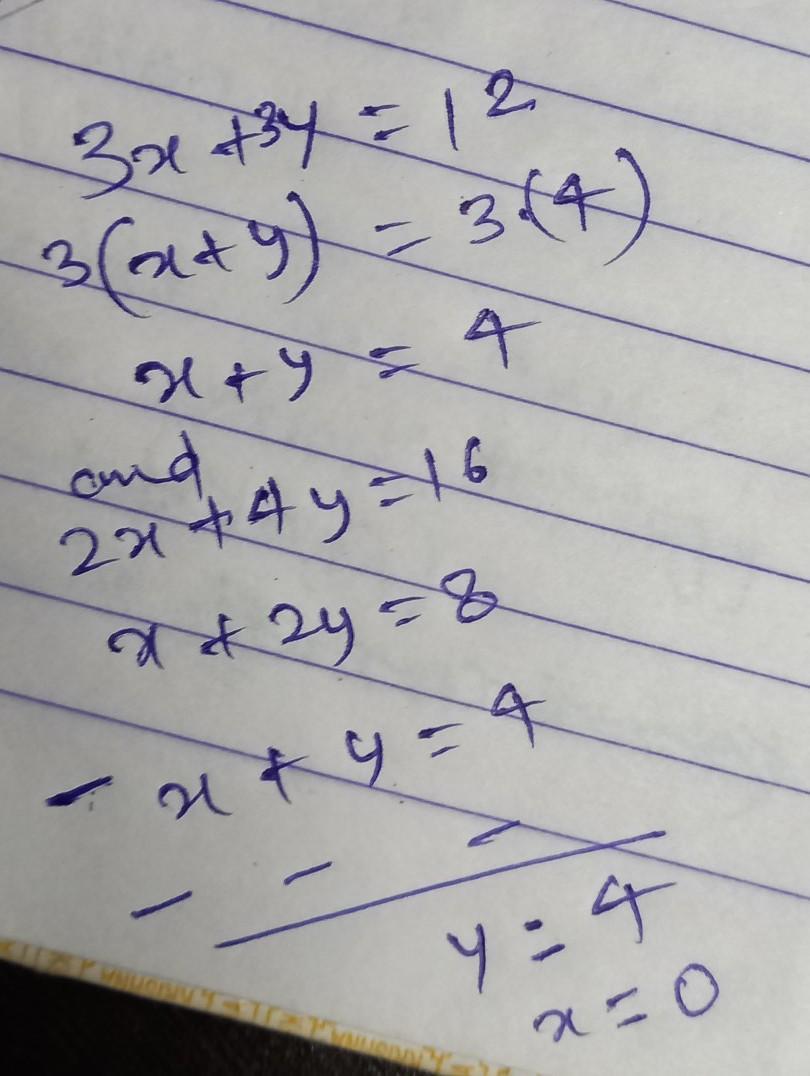 3x + 3y = 12
3(x + y) = 3.(4)
x + y = 4
and
2x + 4y = 16
x + 2y = 8
- x + y = 4
- - -
y = 4
x = 0